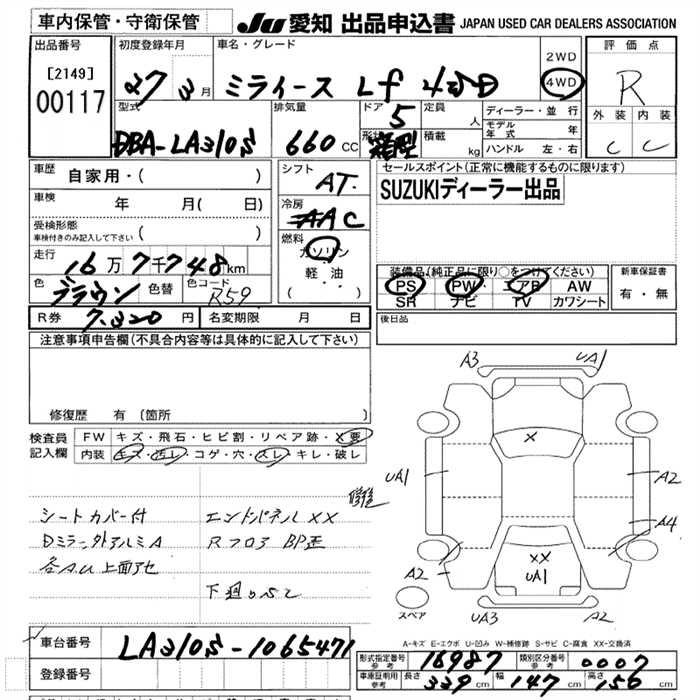 車内保管・守衛保管
JU 愛知 出品申込書 JAPAN USED CAR DEALERS ASSOCIATION
出品番号
[2149]
00117
初度登録年月
27 3月
車名・グレード
ミライース Lf 4WD
2WD
4WD
評価点
R
外装 内装
C C
型式
DBA-LA310S
排気量
660 CC
ドア 5
形状 箱型
定員 人
積載 kg
ディーラー・並行
モデル年式 年
ハンドル 左・右
車歴 自家用・( )
車検 年 月( 日)
受検形態
車検付きのみ記入して下さい ( )
走行 16万7千748km
色 ブラウン 色替 色コード R59
R券 7,320円 名変期限 月 日
シフト AT
冷房 AAC
燃料
ガソリン
軽・油
( ・ )
セールスポイント(正常に機能するものに限ります)
SUZUKIディーラー出品
装備品(純正品に限り○をつけてください)
PS PW エアB AW
SR ナビ TV カワシート
新車保証書
有・無
後日品
注意事項申告欄(不具合内容等は具体的に記入して下さい)
修復歴 有 (箇所 )
検査員記入欄
FW キズ・飛石・ヒビ割・リペア跡・X要
内装 キズ・汚レ・コゲ・穴・スレ・キレ・破レ
シートカバー付
Dミラー外アルミA
各A.U上面アセ
エンドパネルXX
Rフロア BP歪
下廻りSC
A3 UA1
X
UA1
A2
A4
修復
A2
XX
UA1
スペア
UA3 A2
A-キズ E-エクボ U-凹み W-補修跡 S-サビ C-腐食 XX-交換済
車台番号 LA310S-1065471
登録番号
形式指定番号 参考 16987
類別区分番号 参考 0007
車庫証明用 参考 長さ 339cm 幅 147cm 高さ 156cm